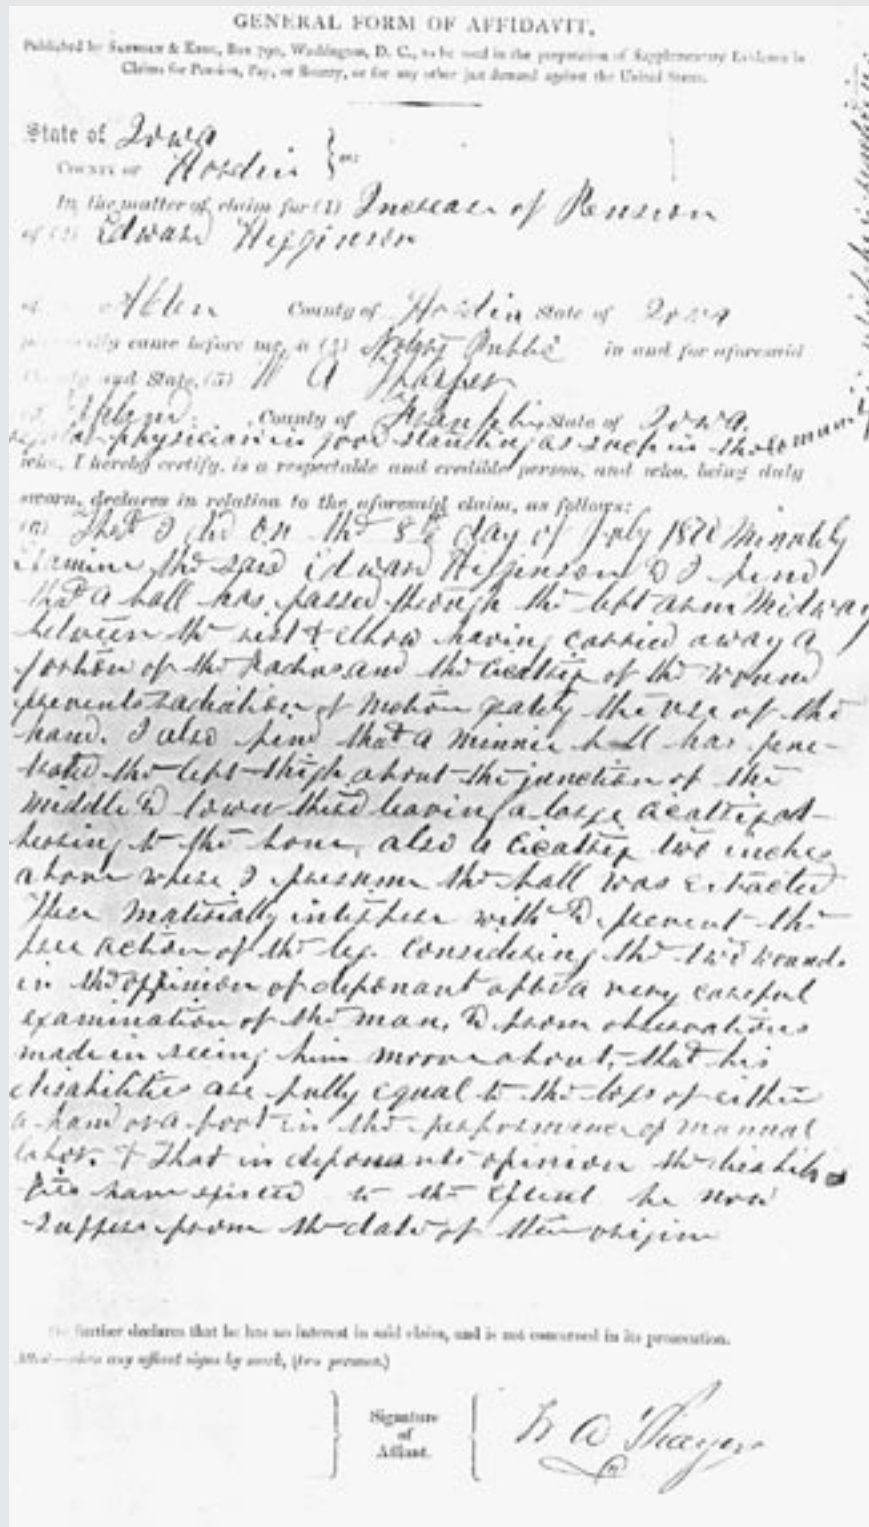 GENERAL FORM OF AFFIDAVIT.
Published by & King, Box 790, Washington, D. C., to be used in the preparation of Supplementary Evidence in
Claims for Pension, Pay, or Bounty, or for any other just demand against the United States.
State of Iowa
COUNTY OF Hardin } ss:
In the matter of claim for (1) Increase of Pension
of (2) Edward Higginson
County of Hardin State of Iowa
came before me, a (3) Notary Public in and for aforesaid
County and State, (5) W A
County of Franklin State of Iowa.
regular physician in good standing as such in the community
who, I hereby certify, is a respectable and credible person, and who, being duly
sworn, declares in relation to the aforesaid claim, as follows:
That I did on the 8th day of July Minutely
Examine the said Edward Higginson & I find
that a ball has passed through the left arm Midway
between the rist & elbow having carried away a
portion of the Radius, and the Cicatrix of the wound
prevents radiation of motion the use of the
hand. I also find that a Minnie ball has pene-
trated the left thigh about the junction of the
middle & lower third leaving a large cicatrix ad-
hering to the bone, also a cicatrix two inches
above where I presume the ball was extracted
Materially interfere with & prevent the
free action of the leg. Considering the two wounds
in the oppinion of deponant after a very careful
examination of the man, & from observations
made in seeing him moove about, that his
disabilities are fully equal to the loss of either
a hand or a foot in the performance of manual
labor. & That in deponants opinion the disabili-
ties have existed to the extent he now
suffers from the date of their origin
further declares that he has no interest in said claim, and is not concerned in its prosecution.
any affiant signs by mark, (two persons.)
Signature
of
Affiant.
W A Thayer